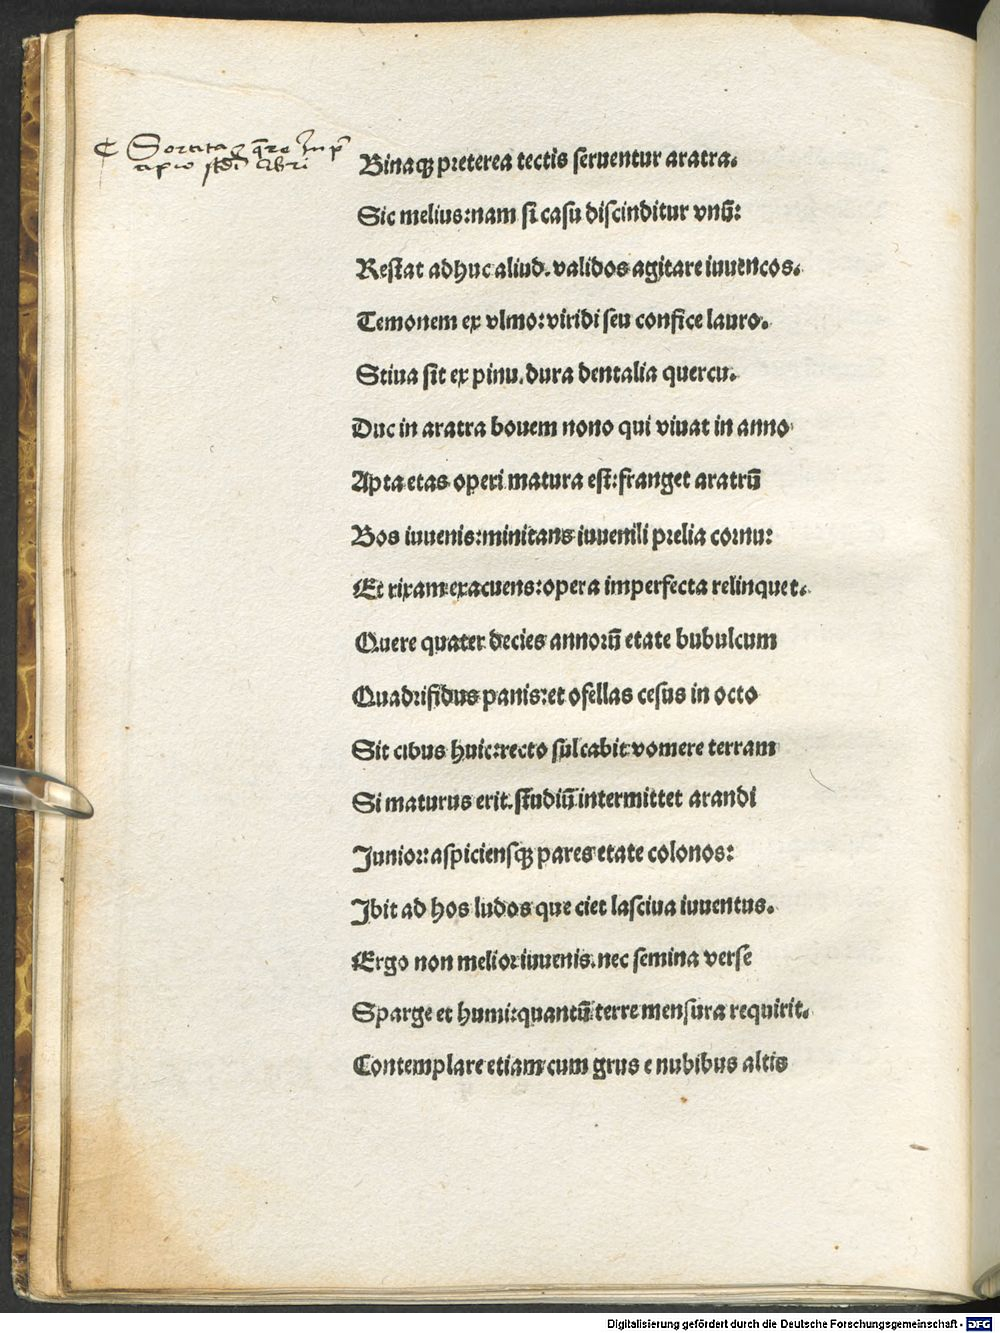 Sortita quere In p̄
cipio scdi libri
Binaqꝫ preterea tectis seruentur aratra.
Sic melius: nam si casu discinditur vnū:
Restat adhuc aliud. validos agitare iuuencos.
Temonem ex vlmo: viridi seu confice lauro.
Stiua sit ex pinu. dura dentalia quercu.
Duc in aratra bouem nono qui viuat in anno
Apta etas operi matura est: franget aratrū
Bos iuuenis: minitans iuuenili prelia cornu:
Et rixam exacuens: opera imperfecta relinquet.
Quere quater decies annorū etate bubulcum
Quadrifidus panis: et ofellas cesus in octo
Sit cibus huic: recto sulcabit vomere terram
Si maturus erit. studiū intermittet arandi
Junior: aspiciensqꝫ pares etate colonos:
Ibit ad hos ludos que ciet lasciua iuuentus.
Ergo non melior iuuenis. nec semina verse
Sparge et humi: quantū terre mensura requirit.
Contemplare etiam cum grus e nubibus altis
Digitalisierung gefördert durch die Deutsche Forschungsgemeinschaft - DFG